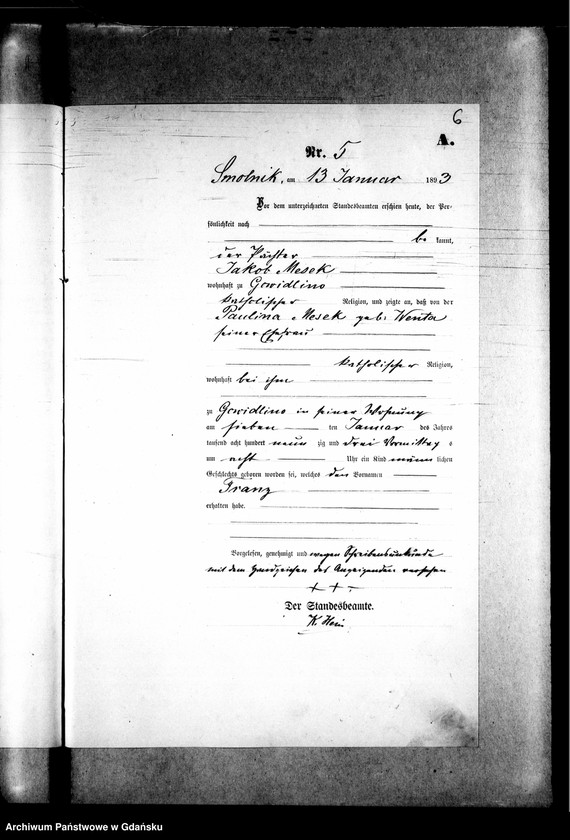 6
A.
Nr. 5
Smolnik, am 13 Januar 1893
Vor dem unterzeichneten Standesbeamten erschien heute, der Per-
sönlichkeit nach
be kannt,
der Pächter
Jakob Mesek
wohnhaft zu Gowidlino
katholischer Religion, und zeigte an, daß von der
Paulina Mesek geb. Wenta
seiner Ehefrau
katholischer Religion,
wohnhaft bei ihm
zu Gowidlino in seiner Wohnung
am sieben ten Januar des Jahres
tausend acht hundert neun zig und drei Vormittag s
um acht Uhr ein Kind männ lichen
Geschlechts geboren worden sei, welches den Vornamen
Franz
erhalten habe.
Vorgelesen, genehmigt und wegen Schreibensunkunde
mit dem Handzeichen des Anzeigenden versehen
+ + +
Der Standesbeamte.
K. Hein
Archiwum Państwowe w Gdańsku